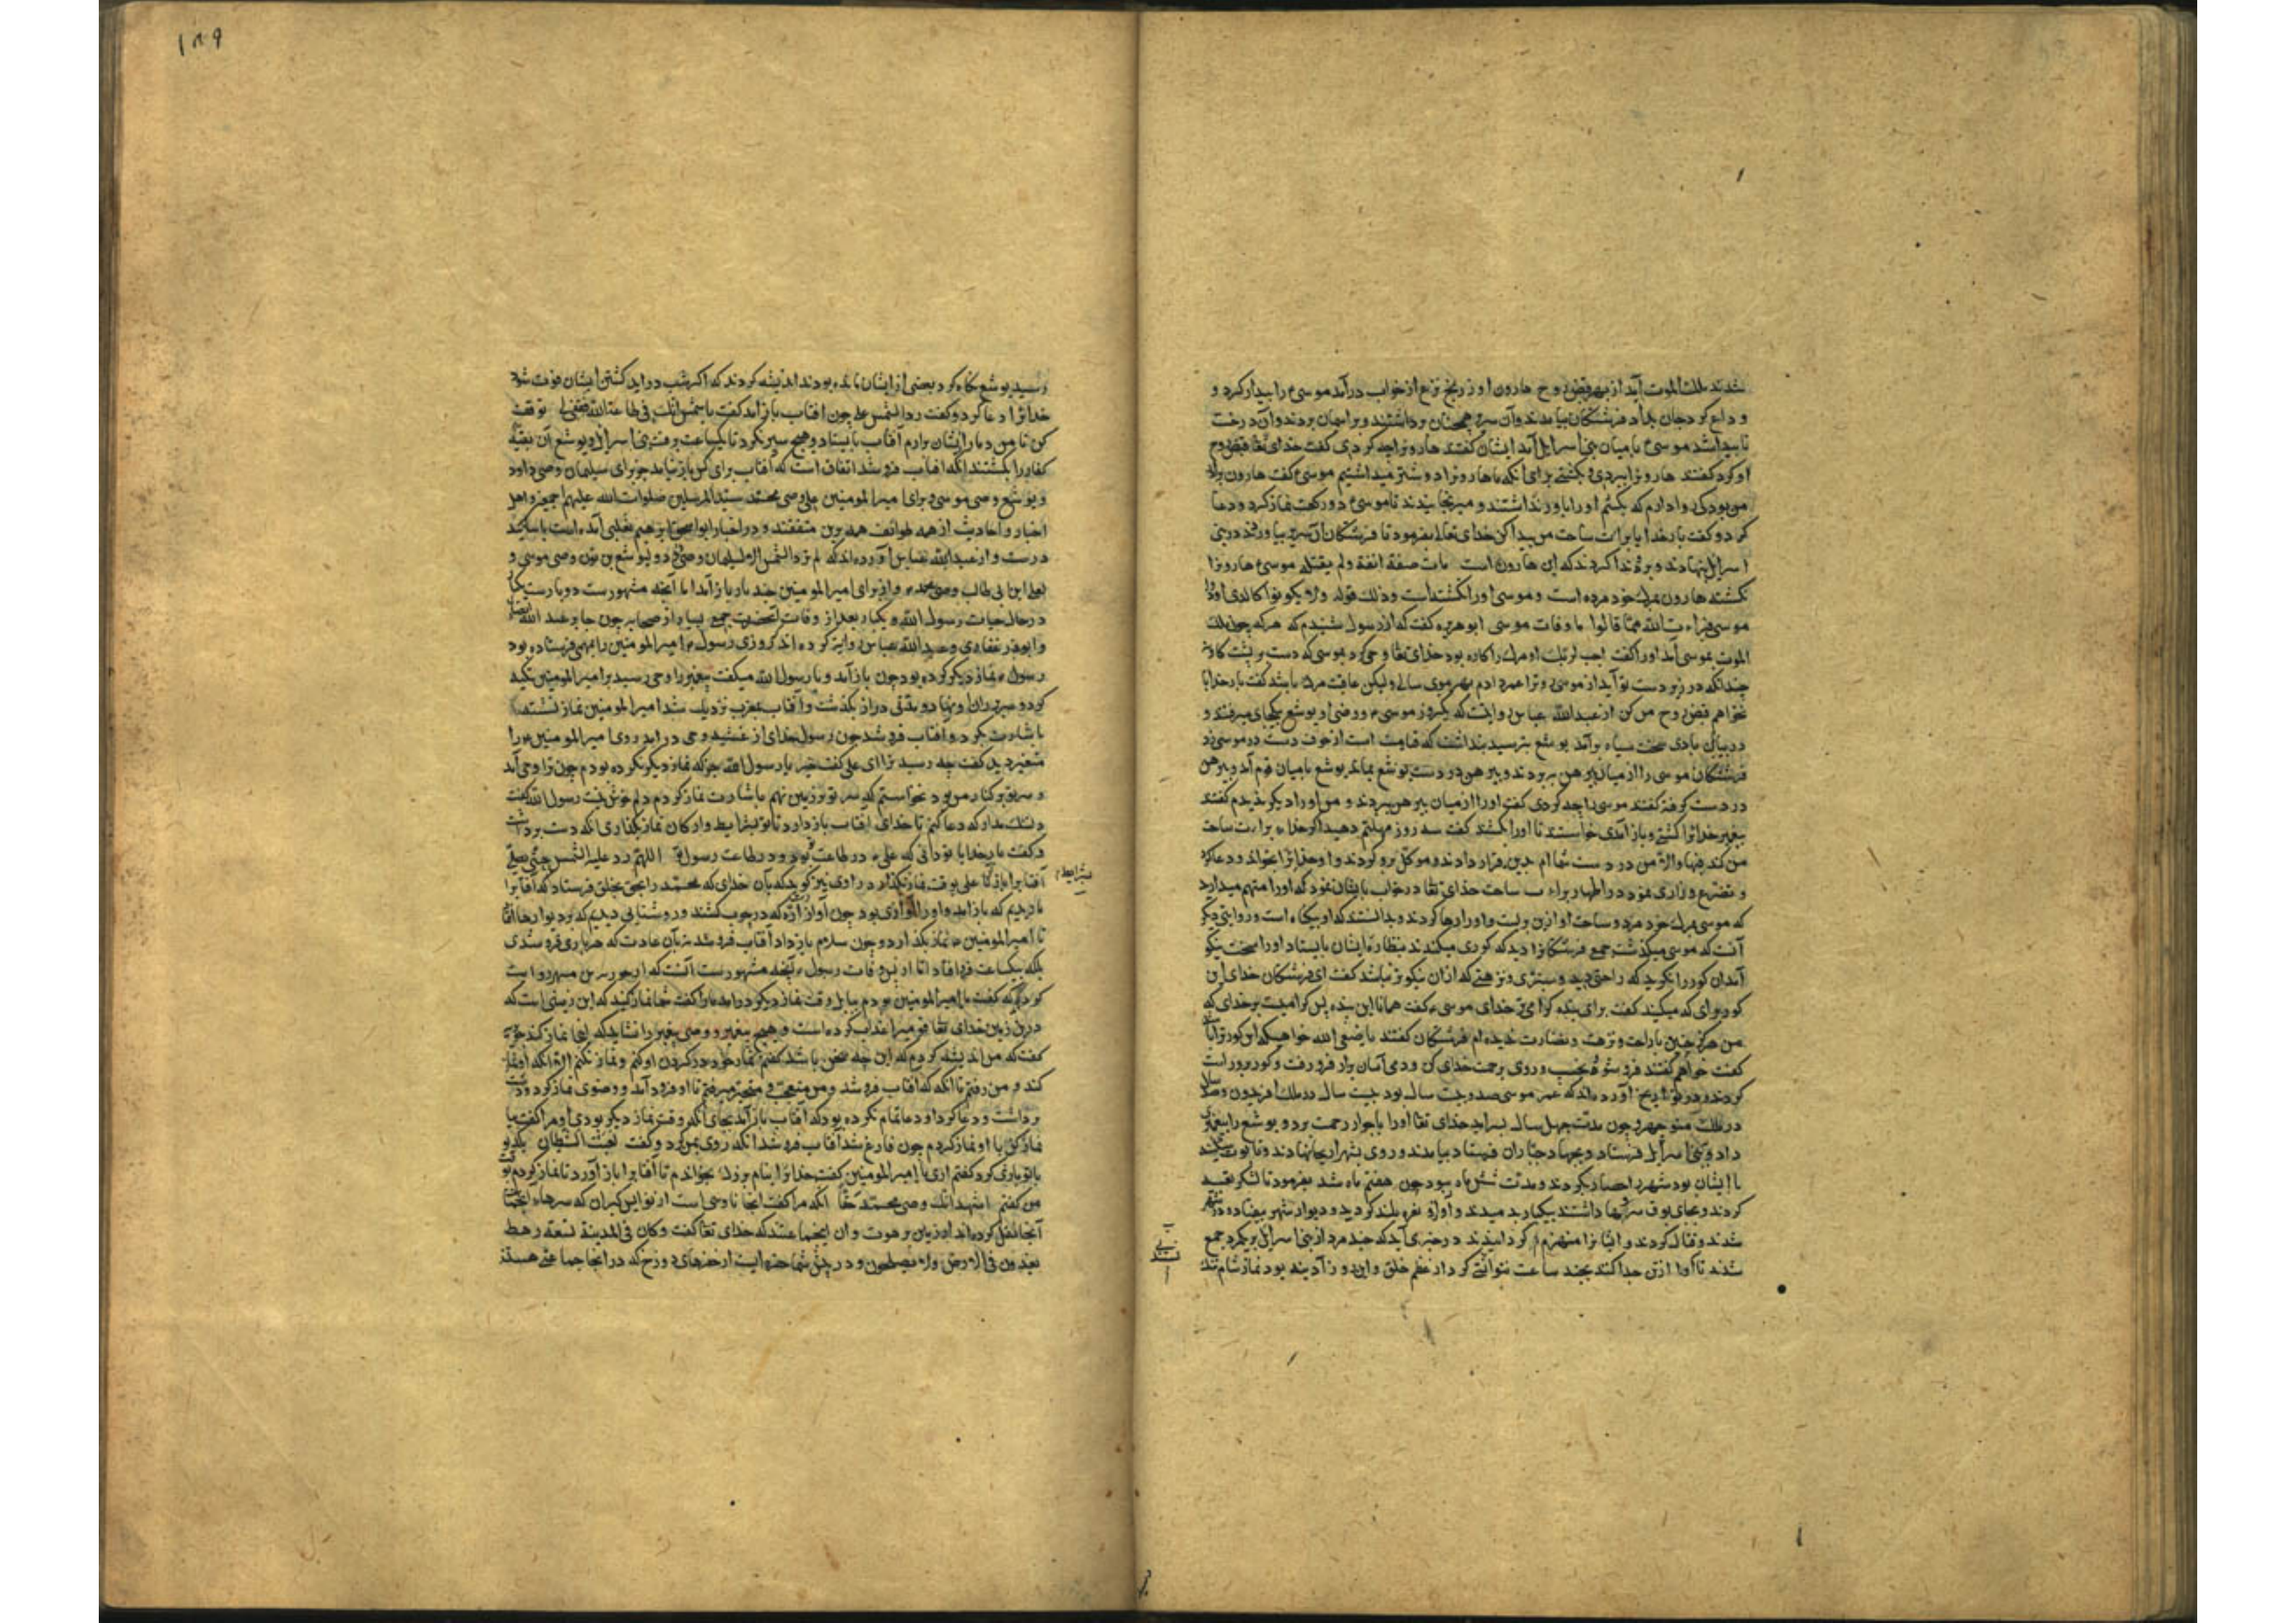 شدند ملك الموت آمد از بهر قبض روح هارون او ز رنج نزع از خواب درآمد موسیء را بیدار کرد و
و داع کرد جان بداد فرشتگان بیامدند و آن سریر همچنان برداشتند و بر اسمان بردند و آن درخت
ناپیدا شد موسیء با میان بنی اسرایل آمد ایشان گفتند هارونرا چه کردی گفت خدای تعا قبض روح
او کرد گفتند هارونرا ببردی و بکشتی برای آنکه ما هارونرا دوستر میداشتیم موسیء گفت هارون برادر
من بود کی روا دارم که بکشم او را باور نداشتند و میرنجانیدند تا موسیء دو رکعت نماز کرد و دعا
کرد و گفت بار خدایا برات ساحت من پیدا کن خدای تعالی بفرمود تا فرشتگان آن سریر بیاوردند در بنی
اسرایل بنهادند و برو ندا کردند که این هارون است مات صفة الله ولم یقتله موسیء هارونرا
نکشتند هارون بمرك خود مرده است و موسی او را نکشته است و ذلك قوله ولا تکونوا کالذین اذوا
موسی فبراه الله مما قالوا اما وفات موسی ابو هریره گفت که از رسول شنیدم که هر که چون ملك
الموت بموسی آمد او را گفت اجب لربك او مرك را کاره بود خدای تعا وحی کرد بموسی که دست بر پشت کاو نه
چندانکه در زیر دست تو آید از موسی و ترا عمر دادم بهر موی سالی ولیکن عاقبت مرك باشد گفت بار خدایا
نخواهم قبض روح من کن از عبدالله عباس روایت که یکروز موسیء و وصی او یوشع بجای میرفتند و
در بیابان بادی سخت سیاه برآمد یوشع بترسید پنداشت که قیامت است از خوف دست در موسی زد
فرشتگان موسی را از میان پیرهن ببردند و پیرهن در دست یوشع بماند یوشع با میان قوم آمد و پیرهن
در دست گرفته گفتند موسی را چه کردی گفت او را از میان پیرهن ببردند و من او را دیگر ندیدم گفتند
پیغمبر خدا را کشتی و باز آمدی خواستند تا او را بکشند گفت سه روز مهلتم دهید اگر خدا برات ساحت
من کند فبها والا من در دست شما ام بدین قرار دادند و موکل برو کردند و او خدا را بخواند و دعا کرد
و تضرع و زاری نمود در اظهار برات ساحت خدای تعا در خواب بایشان نمود که او را متهم میدارید
که موسی بمرك خود مرد و ساحت او ازین بریست و او را رها کردند و بدانستند که او بیکناه است و روایتی دیگر
آنست که موسی میگذشت جمع فرشتگانرا دید که کوری میکندند بنظاره ایشان بایستاد او را سخت نیکو
آمد آن کور را نکرید که راحتی دید و سبزی و نزهتی که ازان نیکوتر نباشد گفت ای فرشتگان خدای این
کور برای که میکنید گفت برای بنده کرامی بر خدای موسیء گفت همانا این بنده پس کرامیست بر خدای که
من هرگز چنین با راحت و نزهت و نضارت ندیده ام فرشتگان گفتند یا صفی الله خواهی که این کور ترا باشد
گفت خواهم گفتند فرو شو و بخسب و روی برحمت خدای کن و دمی آسان برار فرو رفت و کور برو راست
کردند و در تواریخ آورده اند که عمر موسی صد و بیست سال بود بیست سال در ملك افریدون و صد سال
در ملك منوچهر و چون مدت چهل سال بسرامد خدای تعا او را با جوار رحمت برد و یوشع را پیغمبری
داد و ببنی اسرایل فرستاد و بجهاد جباران فرستاد بیامدند و روی بشهر اریحا نهادند و تابوت سکینه
با ایشان بود شهر را حصار کردند و مدت شش ماه ببود چون هفتم ماه شد بفرمود تا لشکر تعبیه
کردند و بجای بوق سرنها داشتند بیکبار بدمیدند و آواز و نعره بلند کردند و دیوار شهر بیفتاد و در شهر
شدند و قتال کردند و ایشانرا منهزم کردانیدند در خبری آید که چند مرد از بنی اسرایل بر یکمرد جمع
شدند تا او را از تن جدا کنند بچند ساعت نتوانستی کرد از عظم خلق و این روز آدینه بود نماز شام تنك
١٨٩
رسید یوشع نگاه کرد بعضی از ایشان مانده بودند اندیشه کردند که اکر شب دراید کشتن ایشان فوت شود
خدا را دعا کرد و گفت رد الشمس علی چون افتاب باز آمد گفت یا شمس انك فی طاعة الله فقفی لی توقف
کن تا من دمار ایشان برارم آفتاب بایستاد و هیچ سیر نکرد تا یکساعت برفت بنی اسرایل و یوشع آن بقیه
کفار را بکشتند انکه افتاب فرو شد اتفاق است که آفتاب برای کس باز نیامد جز برای سلیمان وصی داود
و یوشع وصی موسی و برای امیر المومنین علی وصی محمد سید المرسلین صلوات الله علیهم اجمعین و اهل
اخبار و احادیث از همه طوایف همه برین متفقند و در اخبار ابو اسحق ابرهیم ثعلبی آمده است باسانید
درست و از عبدالله عباس آورده اند که لم ترد الشمس الا لسلیمان وصی داود و لیوشع بن نون وصی موسی و
لعلی ابن ابی طالب وصی محمد و از برای امیر المومنین چند بار باز آمد اما آنچه مشهورست دو بارست یکبار
در حال حیات رسول الله و یکبار بعد از وفات آنحضرت جمع بسیار از صحابه چون جابر عبدالله انصاری
و ابوذر غفاری و عبدالله عباس روایت کرده اند که روزی رسول امیر المومنین را بمهمی فرستاده بود
رسول نماز دیگر کرده بود چون باز آمد و با رسول الله میکفت پیغمبر را وحی رسید بر امیر المومنین تکیه
کرد و سر بر ران او نهاد و مدتی دراز بگذشت و آفتاب بمغرب نزدیك شد امیر المومنین نماز نشسته
باشارت بکرد و افتاب فرو شد چون رسول خدای از غشیه وحی درامد روی امیر المومنین را
متغیر دید گفت چه رسید ترا ای علی گفت خیر یا رسول الله جز که نماز دیگر نکرده بودم چون ترا وحی آمد
و سر تو بر کنار من بود نخواستم که سر تو بر زمین نهم باشارت نماز کردم دلم خوش نیست رسول الله گفت
دلتنك مدار که دعا کنم تا خدای افتاب باز دارد تا تو بشرایط و ارکان نماز بگذاری انکه دست برداشت
و گفت بار خدایا تو دانی که علی در طاعت تو بود و در طاعت رسول تو اللهم رد علیه الشمس حتی یصلی
آفتابرا باز آر تا علی بوقت نماز بگذارد راوی خبر گوید که بآن خدای که محمد را بحق بخلق فرستاد که آفتابرا
بدیدیم که باز امد و او را آوازی بود چون آواز اره که در چوب کشند و روشنایی دیدیم که بر دیوارها افتاد
تا امیر المومنین نماز بگذارد و چون سلام باز داد آفتاب فرو شد نه بآن عادت که هر باری فرو شدی
بلکه بیکساعت فرو افتاد اما از پس وفات رسول آنچه مشهورست آنست که از جویریه بن مسهر روایت
کرده اند که گفت با امیر المومنین بودم ببابل وقت نماز دیگر درامد مارا گفت شما نماز کنید که این زمینی است که
درین زمین خدای تعا قومیرا عذاب کرده است و هیچ پیغمبر و وصی پیغمبر را نشاید که اینجا نماز کند جویریه
گفت که من اندیشه کردم که این چه سخن باشد گفتم نماز خود در گردن او کنم و نماز نکنم الا انکه او نماز
کند و من رفتم تا انکه که افتاب فرو شد و من متعجب و متحیر میرفتم تا او فرود آمد و وضوی نماز کرد و دست
برداشت و دعا کرد او دعا تمام نکرده بود که آفتاب باز آمد بجای آنکه وقت نماز دیگر بودی او مرا گفت بیا
نماز کن با او نماز کردم چون فارغ شد آفتاب فرو شد انکه روی بمن کرد و گفت لعبت الشیطان بك دیو
با تو بازی کرد گفتم اری یا امیر المومنین گفت خدا را بنام بزرك بخواندم تا آفتابرا باز آورد تا نماز کردم بوقت
من گفتم اشهد انك وصی محمد حقا
آنجا نقل کرده اند از زمین برهوت و ان ایشان جماعتند که خدای تعا گفت وکان فی المدینة تسعة رهط
یفسدون فی الارض ولا یصلحون و در